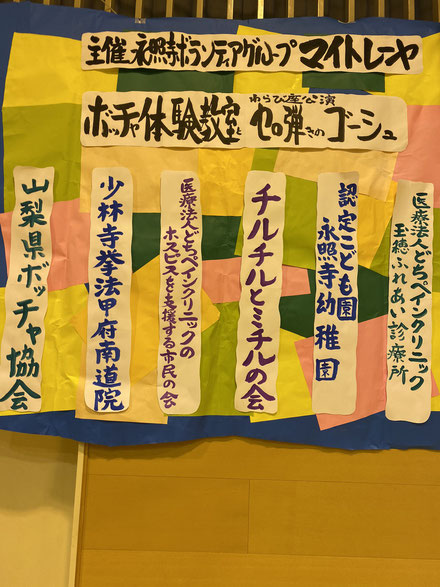 主催 永照寺ボランティアグループ マイトレーヤ
わらび座公演
ボッチャ体験教室と セロ弾きのゴーシュ
医療法人どちペインクリニック
玉穂ふれあい診療所
認定こども園
永照寺幼稚園
チルチルとミチルの会
医療法人どちペインクリニックの
ホスピスを支援する市民の会
少林寺拳法甲府南道院
山梨県ボッチャ協会